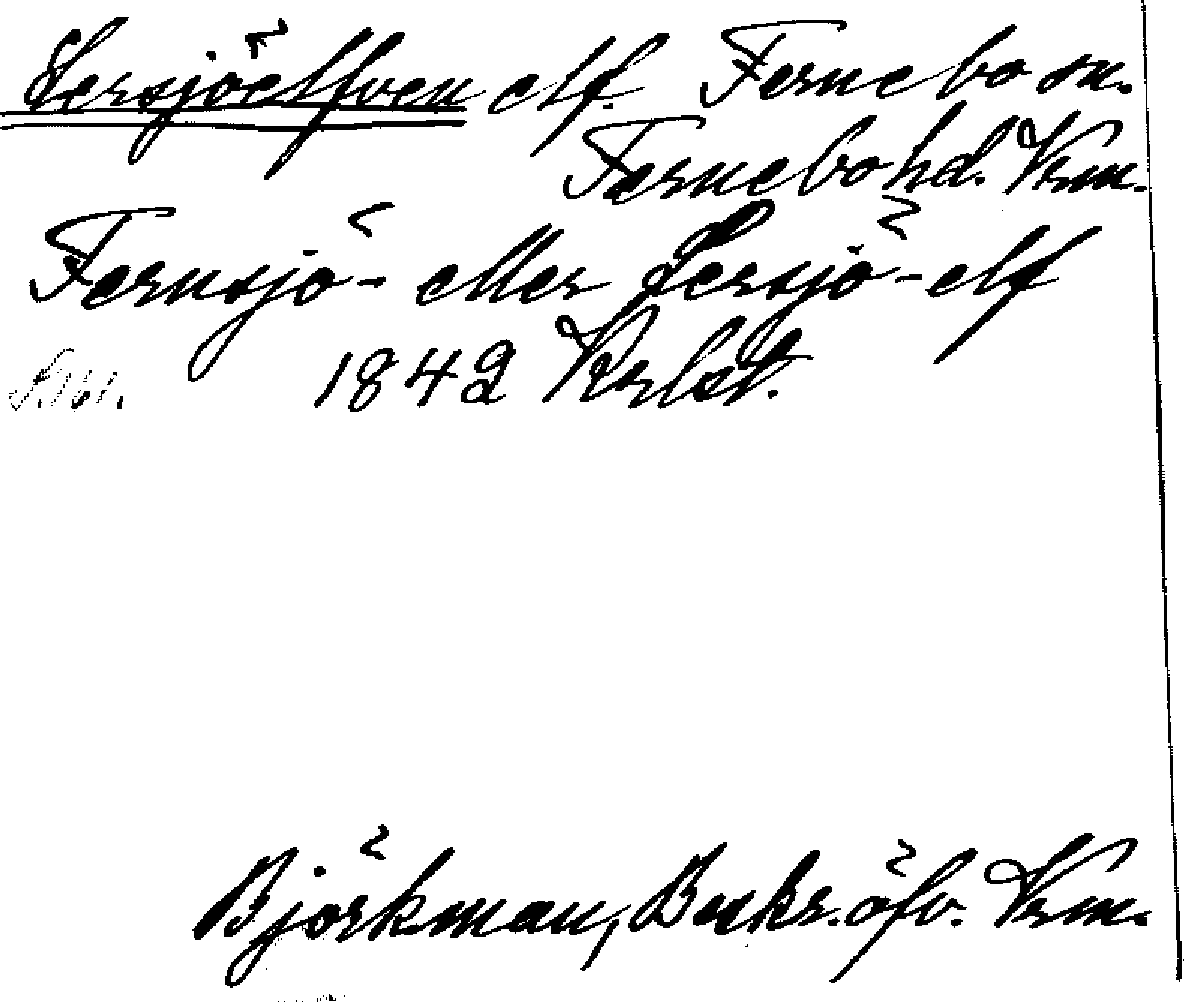 Lersjöelfven elf. Fernebo sn.
Fernebo hd. Vrm.
Fernsjö- eller Lersjö-elf
S. 161. 1842 Krlst.
Björkman, Beskr. öfv. Vrm.